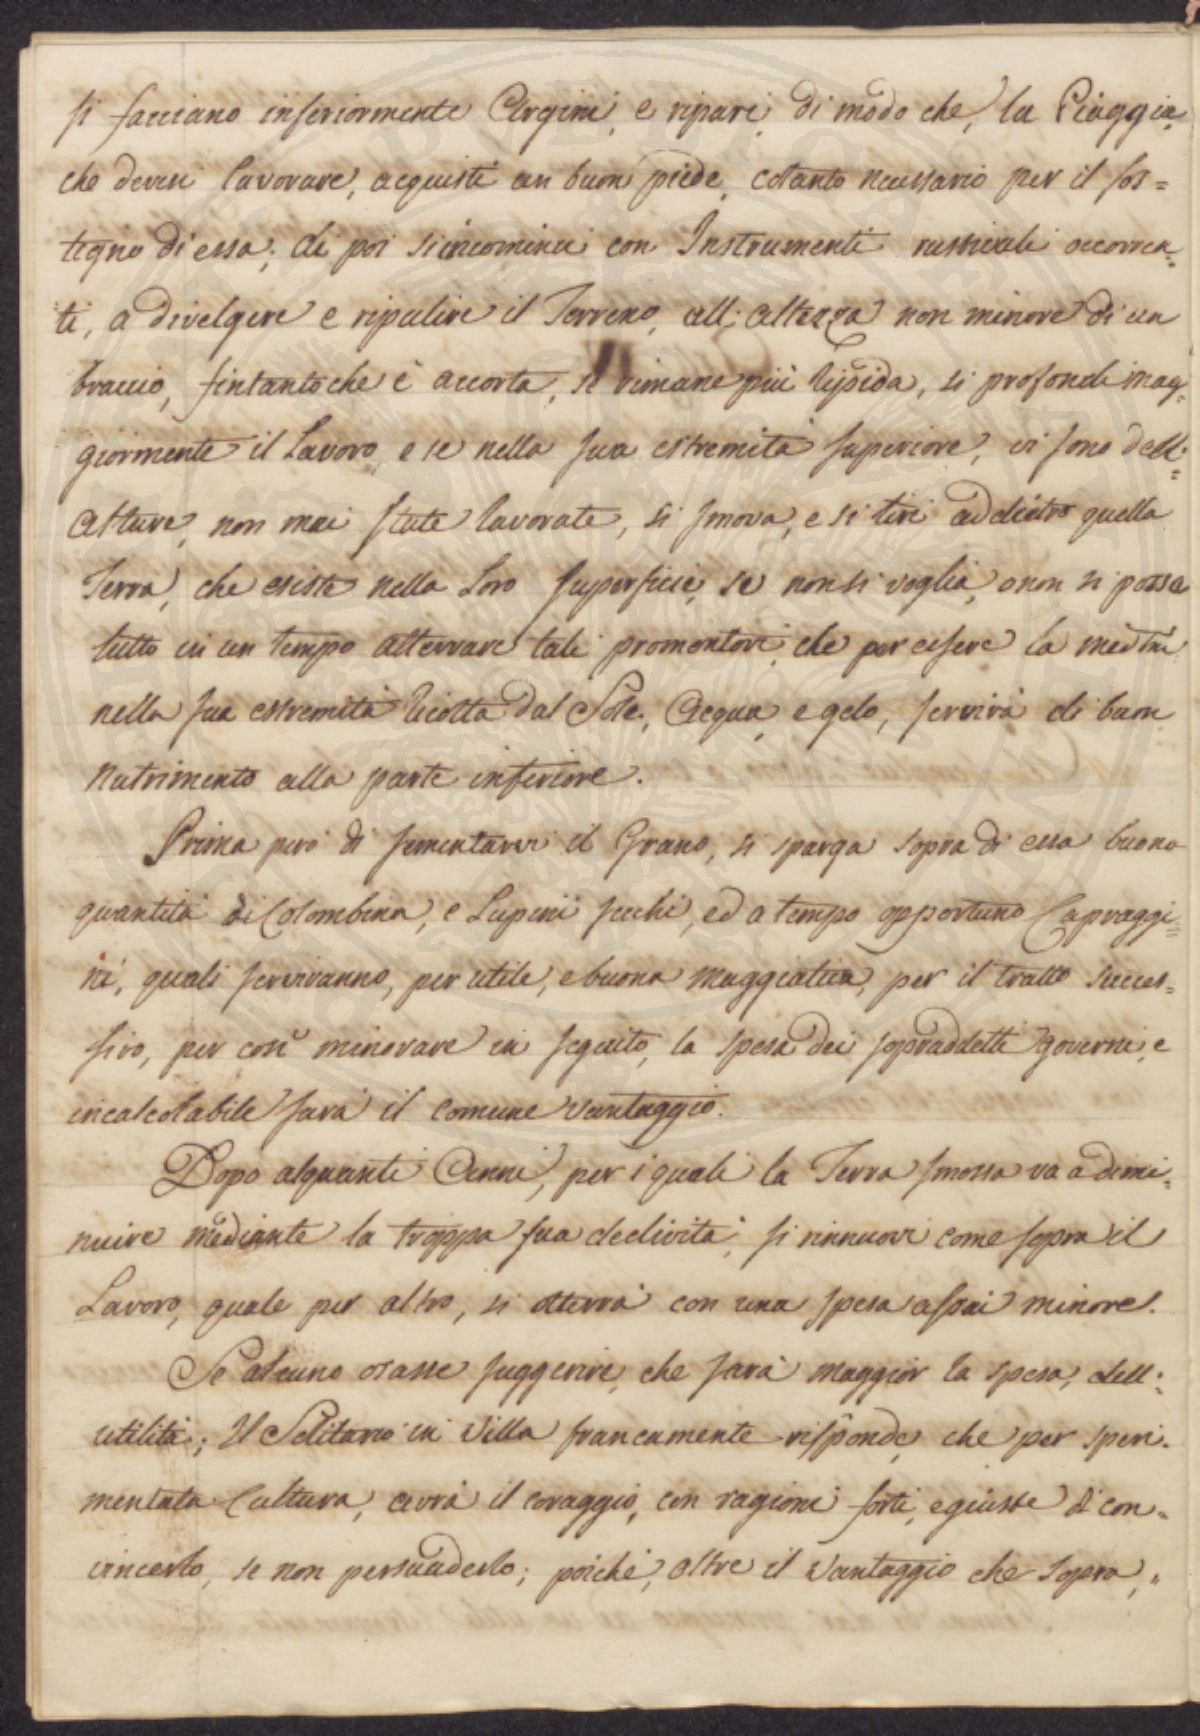 si facciano inferiormente Argini, e ripari, di modo che, la Piaggia,
che devesi lavorare, acquisti un buon piede, cotanto necessario per il sos=
tegno di essa; di poi si incominci con Instrumenti rusticali accorca=
ti, a divelgere e ripulire il Terreno, all: altezza non minore di un
braccio, fintantoche è accorta, se rimane più lipida, si profondi mag=
giormente il Lavoro, e se nella sua estremità superiore, vi sono dell:=
Alture, non mai state lavorate, si smova, e si tiri addietro quella
Terra, che esiste nella Loro superficie, se non si voglia, o non si possa
tutto in un tempo atterrare tali promontori, che per essere la medma
nella sua estremità ricotta dal Sole, Acqua, e gelo, servirà di buon
nutrimento alla parte inferiore.
Prima però di sementarvi il Grano, si sparga sopra di essa buona
quantità di Colombina, e Lupini secchi, ed a tempo opportuno Capraggi=
ni, quali serviranno, per utile, e buona maggiatica, per il tratto succes=
sivo, per così minorare in seguito, la spesa dei sopraddetti governi, e
incalcolabile sarà il comune vantaggio.
Dopo alquanti Anni, per i quali la Terra smossa va a dimi=
nuire mediante la troppa sua declività, si rinnuovi come sopra il
Lavoro, quale per altro, si otterrà con una spesa assai minore.
Se alcuno osasse suggerire, che sarà maggior la spesa, dell:=
utilità; Il Solitario in Villa francamente risponde, che per speri=
mentata Cultura, avrà il coraggio, con ragioni forti, e giuste di con=
vincerlo, se non persuaderlo; poiché, oltre il vantaggio che sopra,=